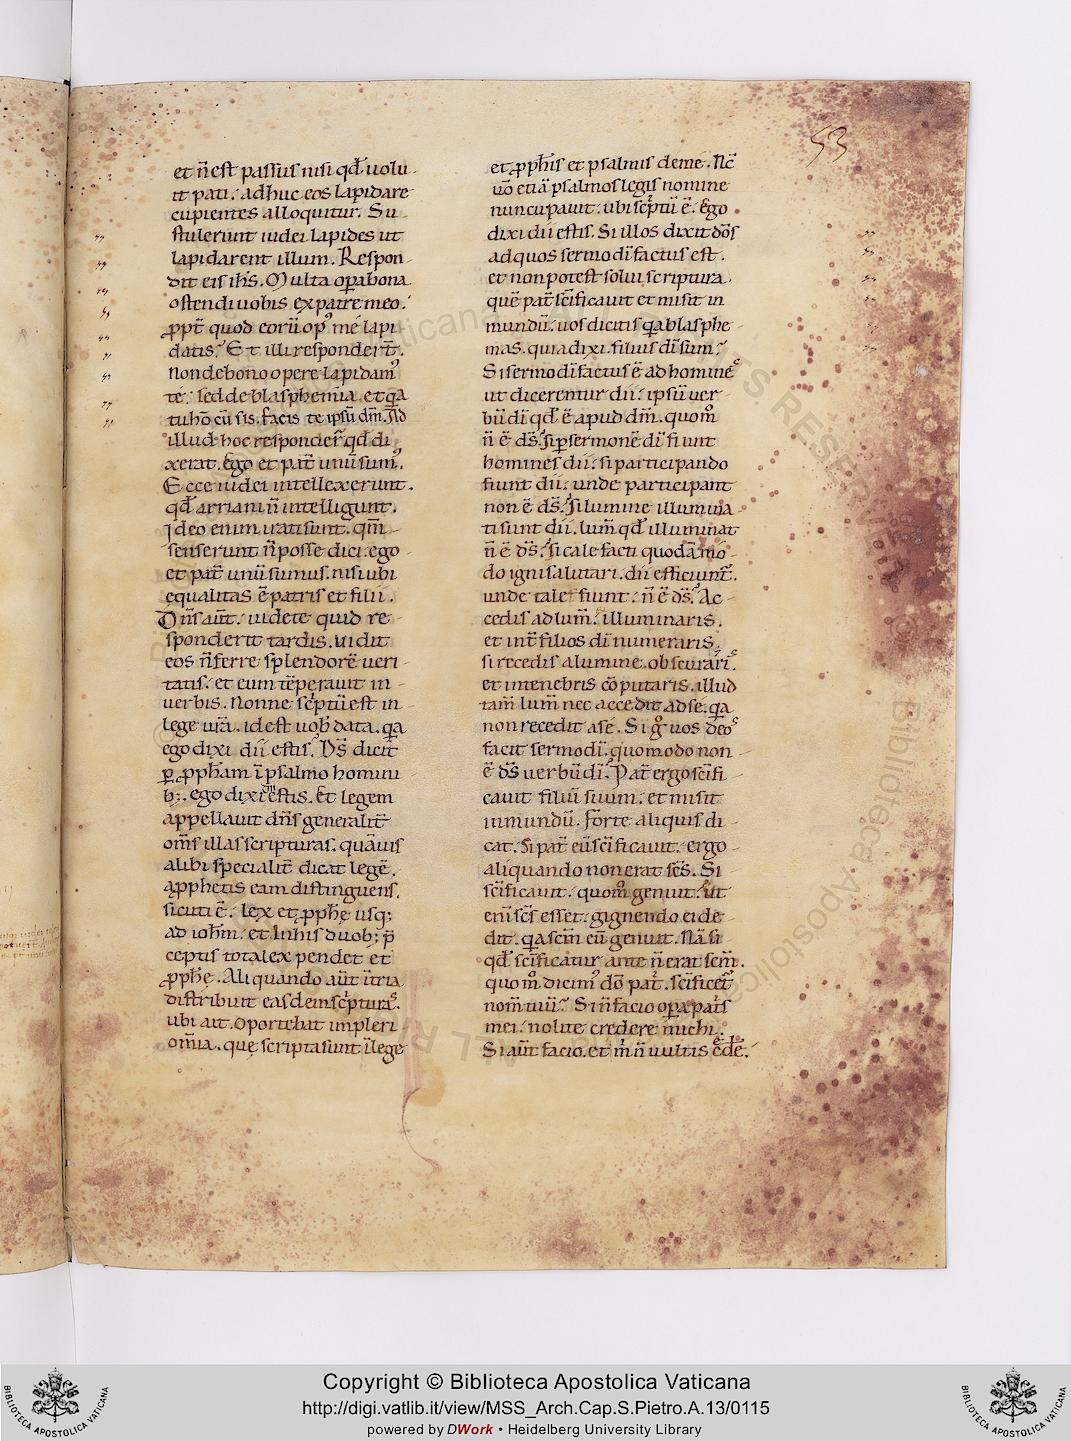 53
et n̄ est passus nisi qđ uolu
it pati. adhuc eos lapidare
cupientes alloquitur. Su
stulerunt iudei lapides ut
lapidarent illum. Respon
dit eis ih̄s. Multa oꝑa bona
ostendi uobis ex patre meo.
ꝓpt̄ quod eorū opꝰ me lapi
datis; Et illi respondert̄.
non de bono opere lapidamꝰ
te. sed de blasphemia. et q̄a
tu hō cū sis. facis te ipsū dm̄. Ad
illud hoc respondert̄. qđ di
xerat. Ego et pat̄ unū sumꝰ.
Ecce iudei intellexerunt.
qđ arriani n̄ intelligunt.
Ideo enim irati sunt. qm̄
senserunt n̄ posse dici. ego
et pat̄ unū sumus. nisi ubi
ęqualitas ē patris et filii.
Dn̄s aūt. uidete quid re
sponderit tardis. Uidit
eos n̄ ferre splendorē ueri
tatis. et eum tēperauit in
uerbis. Nonne sc̄ptū est in
lege ur̄a. id est uob̄ data. q̄a
ego dixi dii estis. Ds̄ dicit
ꝑ ꝓpħam ī psalmo homini
b;. ego dixi dii estis. Et legem
appellauit dn̄s generalit̄
om̄s illas scripturas. quāuis
alibi specialit̄ dicat legē.
a ꝓphetis eam distinguens.
sicuti ē. lex et ꝓpħę usq;
ad ioħm. et In his duob; p̄
ceptis tota lex pendet et
ꝓpħę. Aliquando aūt ī tria
distribuit easdem sc̄pturas.
ubi ait. Oportebat impleri
om̄ia. quę scripta sunt ī lege
et ꝓpħis et psalmis de me. Nc̄
uō etiā psalmos legis nomine
nuncupauit. ubi sc̄ptū ē. Ego
dixi dii estis. Si illos dixit dōs
ad quos sermo dī factus est.
et non potest solui scriptura.
quē pat̄ sc̄ificauit et misit in
mundū. uos dicitis q̄a blasphe
mas. quia dixi. filius dī sum;
Si sermo dī factus ē ad homines
ut dicerentur dii. ipsū uer
bū dī qđ ē apud dm̄. quom̊
n̄ ē ds̄. Si ꝑ sermonē dī fiunt
homines dii. si participando
fiunt dii. unde participant
non ē ds̄. Si lumine illumina
ti sunt dii. lum̄ qđ illuminat
n̄ ē ds̄. Si calefacti quodā mō
do igni salutari. dii efficiunt̄.
unde tales fiunt. n̄ ē ds̄. Ac
cedis ad lum̄. illuminaris.
et int̄ filios dī numeraris.
si recedis a lumine. obscuraris.
et in tenebris cōputaris. illud
tam̄ lum̄ nec accedit ad se. q̄a
non recedit a se. Si g̊ uos deos
facit sermo dī. quomodo non
ē ds̄ uerbū dī. Pat̄ ergo sc̄ifi
cauit filiū suum. et misit
in mundū. Forte aliquis di
cat. Si pat̄ eū sc̄ificauit. ergo
aliquando non erat sc̄s. Si
sc̄ificauit. quom̊ genuit. Ut
eni sc̄s esset. gignendo ei de
dit. q̄a sc̄m eū genuit. Nā si
qđ sc̄ificatur ante n̄ erat sc̄m.
quom̊ dicimꝰ dō pat̄. sc̄ificet̄
nom̄ tuū; Si n̄ facio oꝑa pat̄s
mei. nolite credere michi.
Si aūt facio. et m̄ n̄ uultis c̄de.
Copyright © Biblioteca Apostolica Vaticana
http://digi.vatlib.it/view/MSS_Arch.Cap.S.Pietro.A.13/0115
powered by DWork • Heidelberg University Library